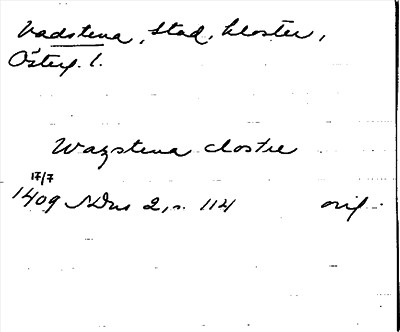 Vadstena, stad, kloster,
Österg. l.
Wazstena clostre
17/7
1409 SDns 2, s. 114 orig.